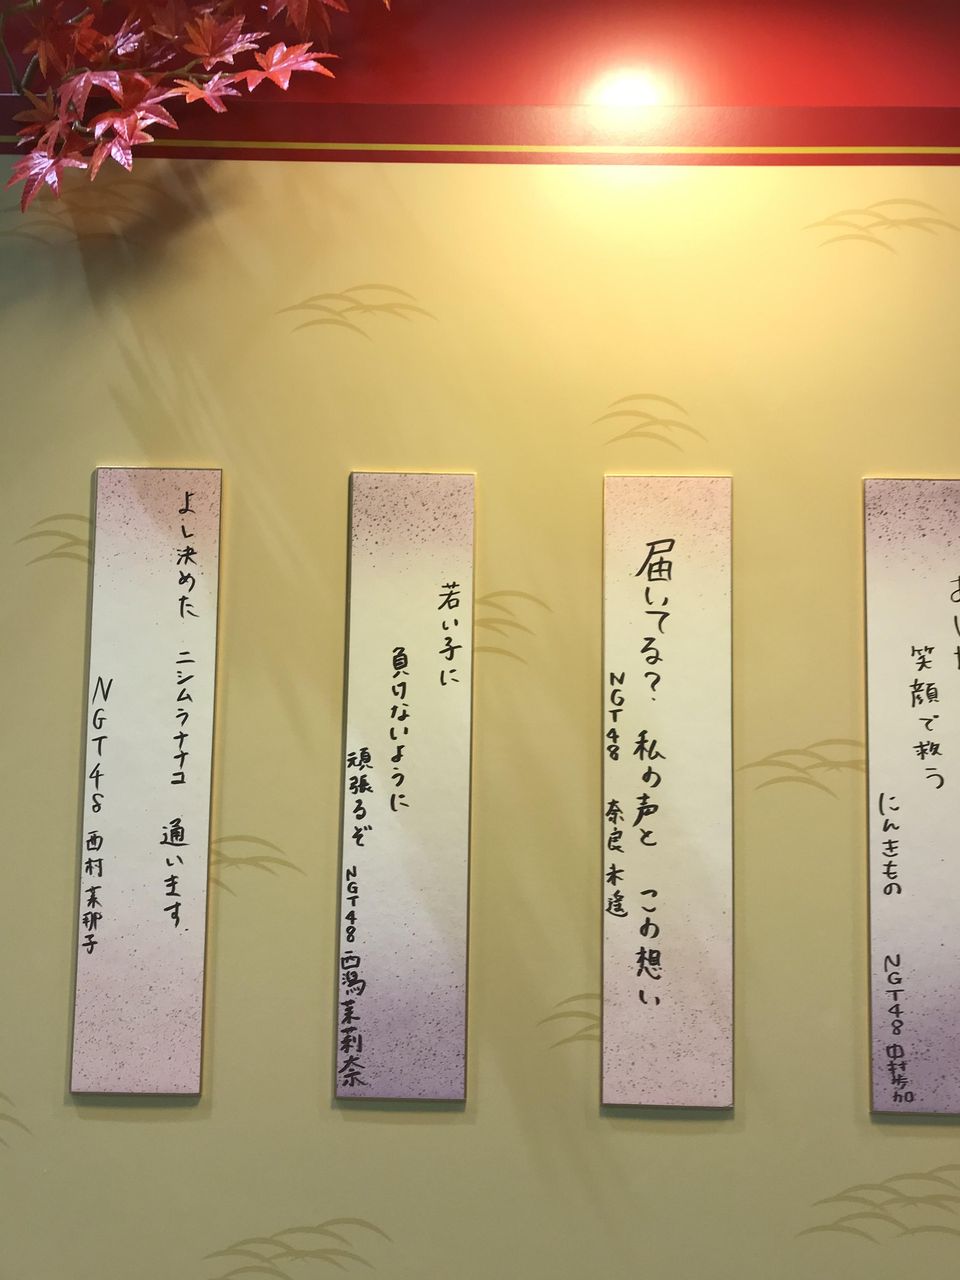 笑顔で救う
にんきもの NGT48 中村歩加
届いてる? 私の声と この想い
NGT48 奈良未遥
若い子に
負けないように
頑張るぞ NGT48 西潟茉莉奈
よし決めた ニシムラナナコ 通います.
NGT48 西村菜那子